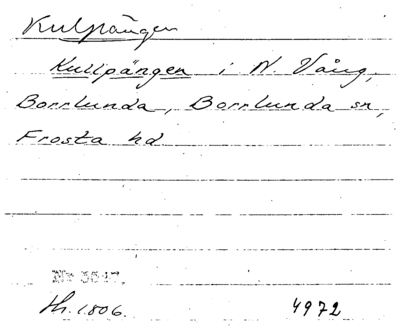 Kulpängen
Kullpängen i N. Vång,
Borrlunda, Borrlunda sn,
Frosta hd
Nr 3847.
Lh. 1806. 4972